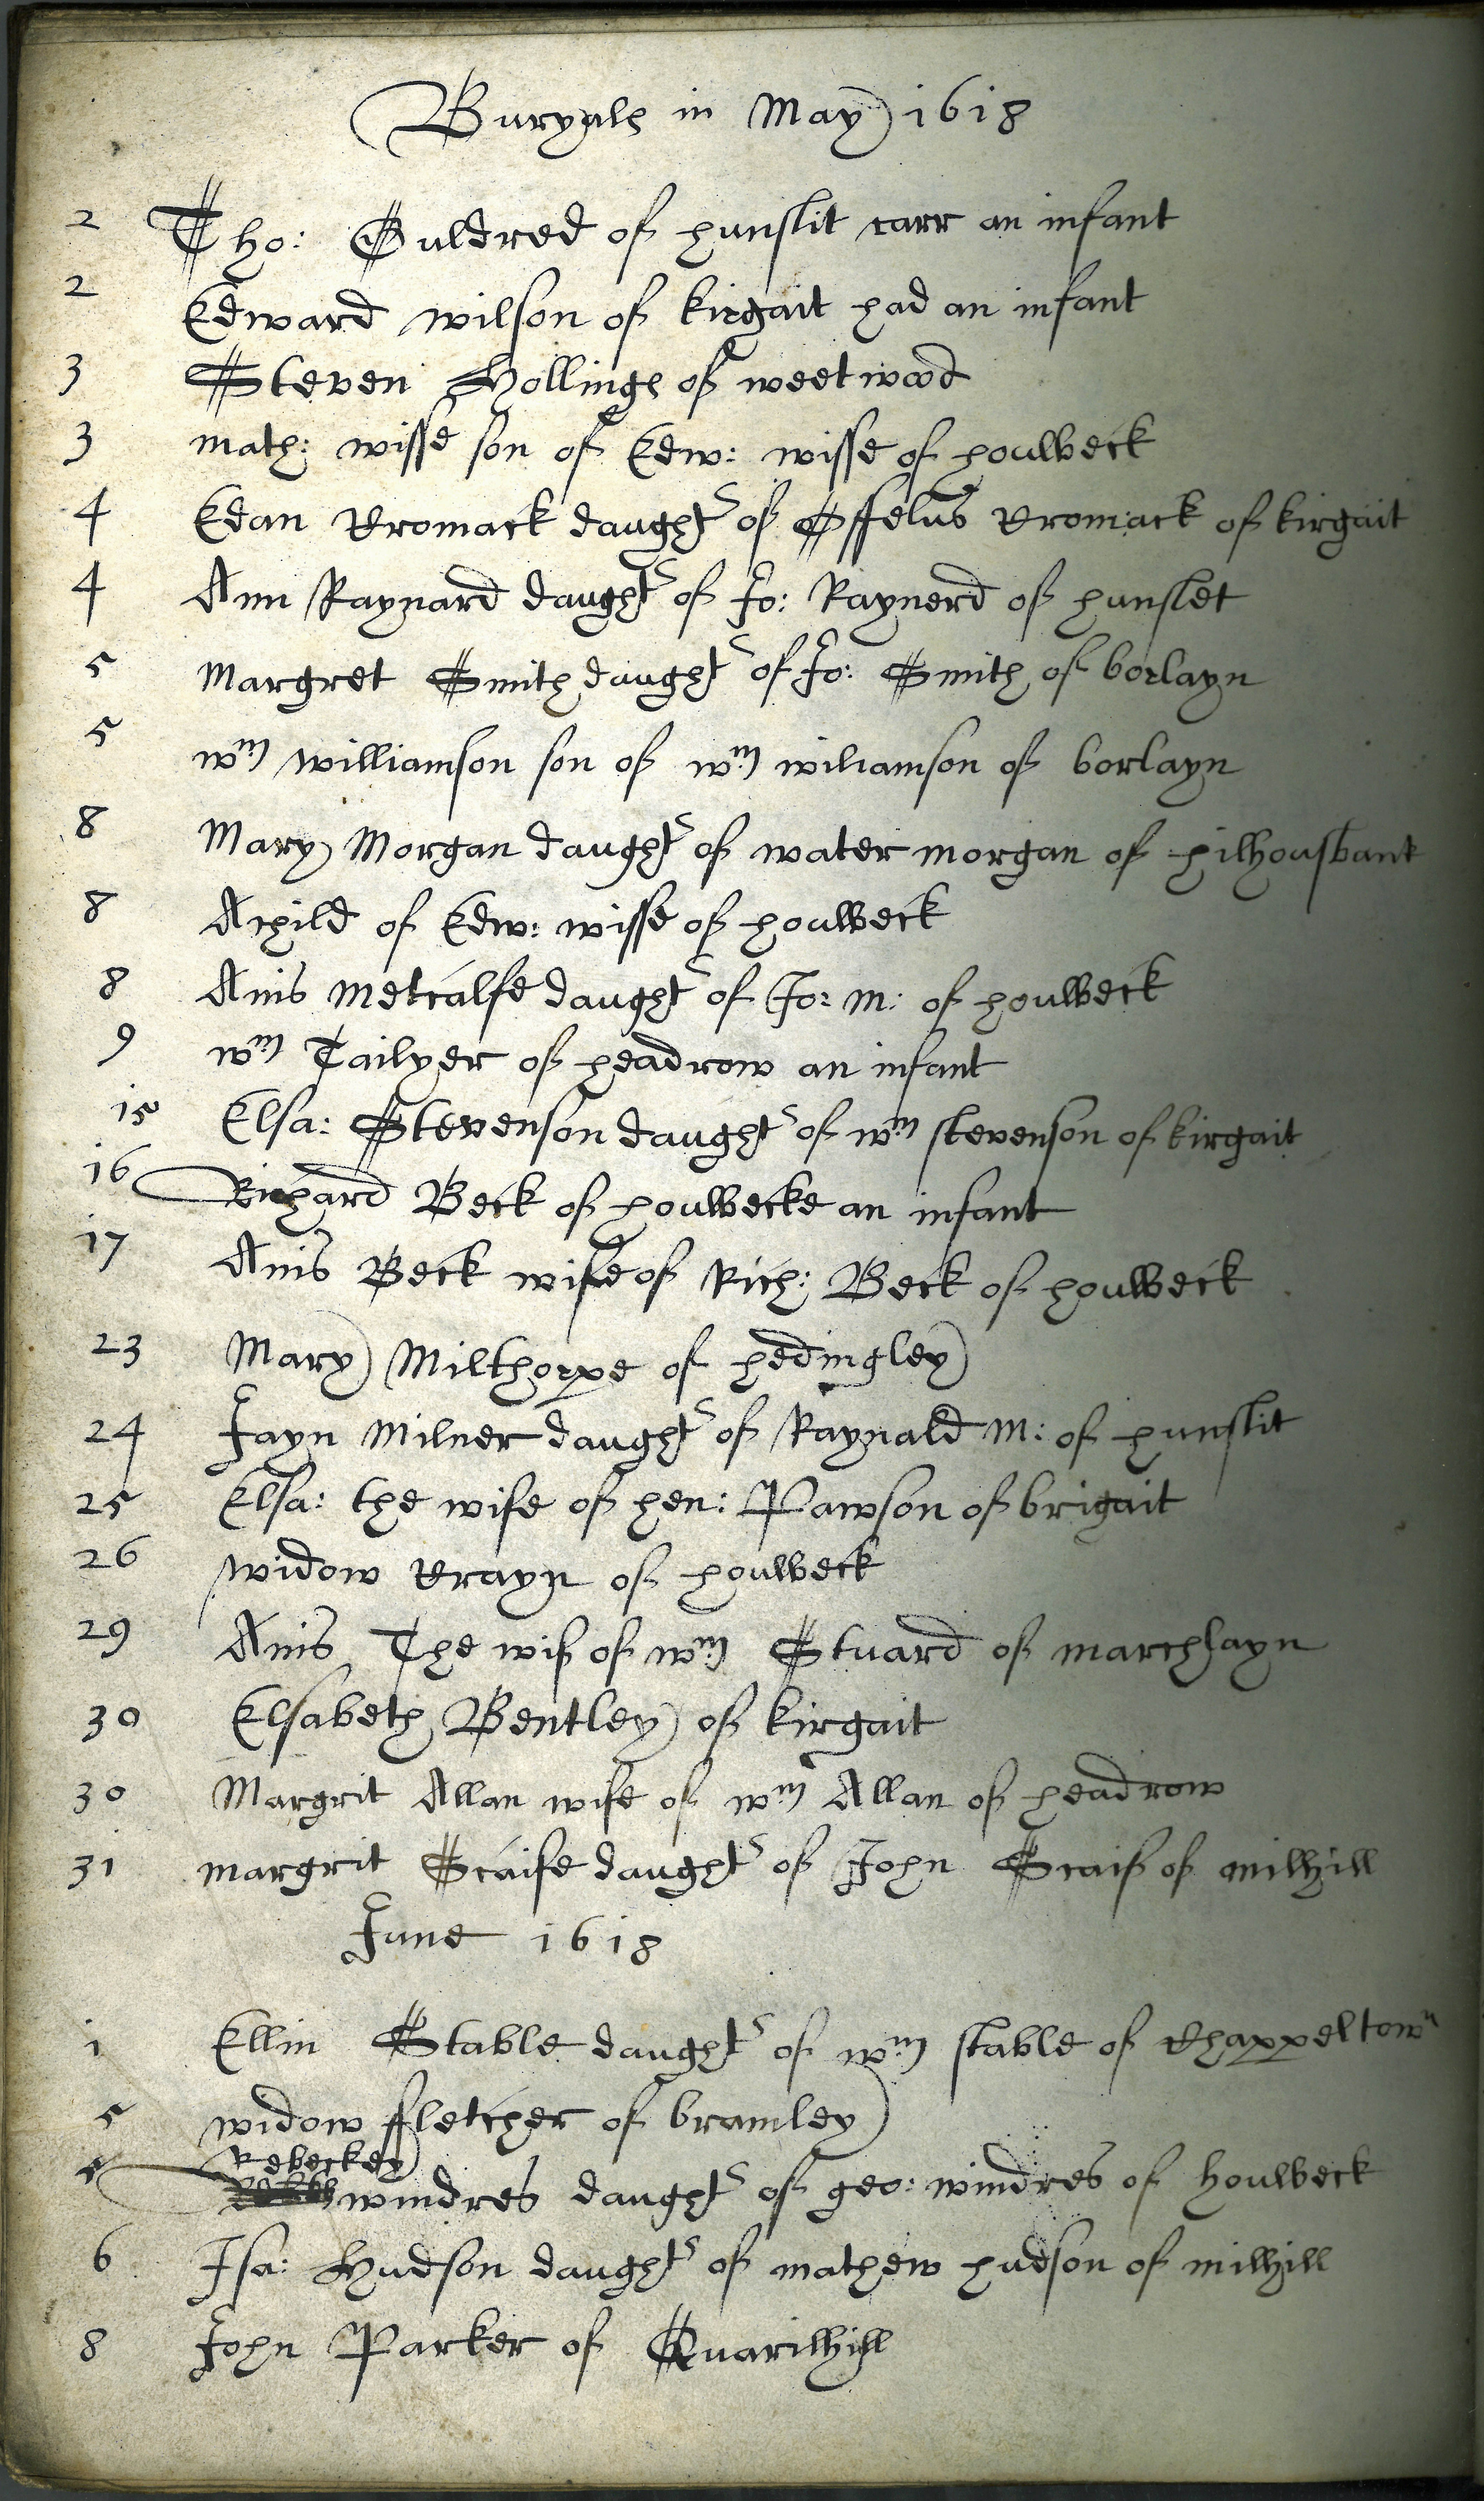 Buryals in May 1618
2 Tho: Ouldred of hunslit carr an infant
2 Edward wilson of kirgait had an infant
3 Steven Hollings of weetwood
3 math: wisse son of Edw: wisse of houlbeck
4 Edan Cromack daught^r of Cromack of kirgait
4 Ann Raynard daught^r of Jo: Raynerd of hunslet
5 Margret Smith daught^r of Jo: Smith of borlayn
5 w^m williamson son of w^m wiliamson of borlayn
8 Mary Morgan daught^r of water morgan of hilhousbank
8 A child of Edw: wisse of houlbeck
8 Anis Metcalfe daught^r of Jo: M: of houlbeck
9 w^m Tailyer of headrow an infant
15 Elsa: Stevenson daught^r of w^m stevenson of kirgait
16 Richard Beck of houlbecke an infant
17 Anis Beck wife of Rich: Beck of houlbeck
23 Mary Milthorpe of hedingley
24 Jayn Milner daught^r of Raynald M: of hunslit
25 Elsa: the wife of hen: Pawson of brigait
26 widow Crayn of houlbeck
29 Anis The wif of w^m Stuard of marchlayn
30 Elsabeth Bentley of kirgait
30 Margrit Allan wife of w^m Allan of headrow
31 margrit Scaife daught^r of John Scaif of milhill
June 1618
1 Ellin Stable daught^r of w^m stable of Chappeltow^n
5 widow ffletcher of bramley
Rebeckey
5 windres daught^r of geo: windres of houlbeck
6 Isa: Hudson daught^r of mathew hudson of milhill
8 John Parker of Quarilhill